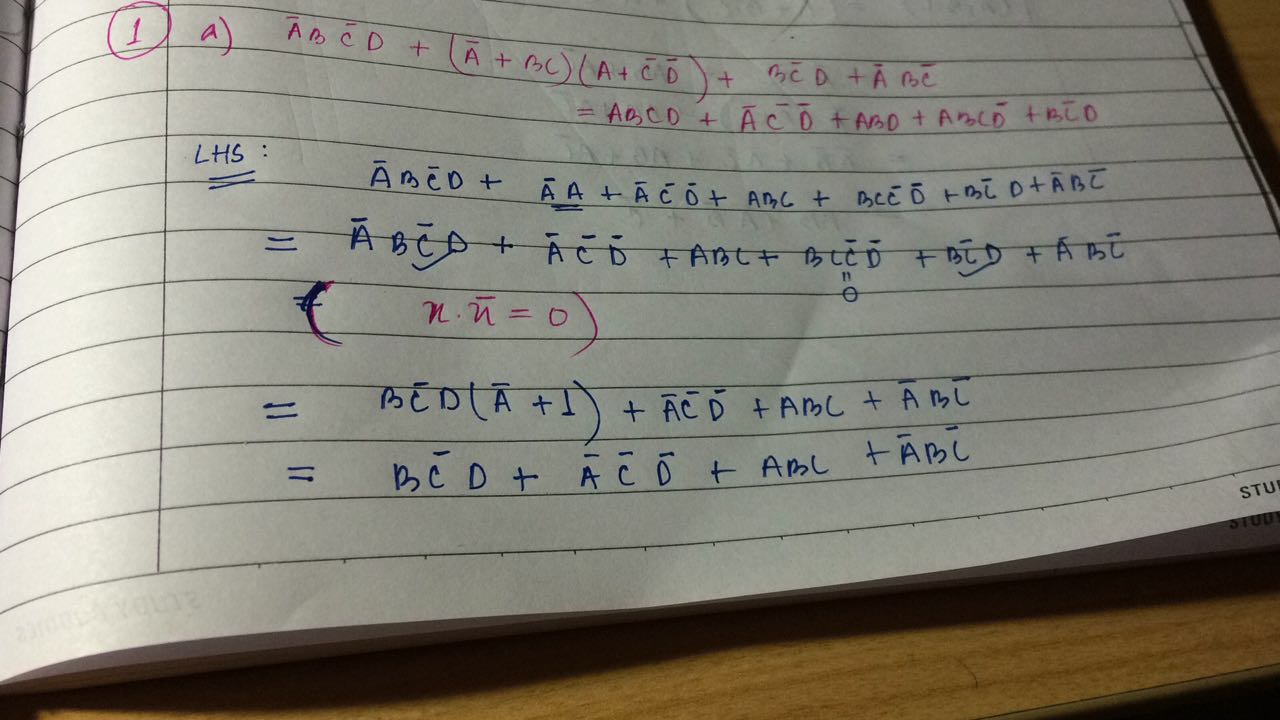 1 a) A̅BC̅D + (A̅ + BC)(A + C̅D̅) + BC̅D + A̅BC̅
= ABCD + A̅C̅D̅ + ABD + ABCD̅ + BC̅D
LHS :
A̅BC̅D + A̅A + A̅C̅D̅ + ABC + BCC̅D̅ + BC̅D + A̅BC̅
= A̅BC̅D + A̅C̅D̅ + ABC + BCC̅D̅ + BC̅D + A̅BC̅
"
0
( x.x̅ = 0 )
= BC̅D(A̅ + 1) + A̅C̅D̅ + ABC + A̅BC̅
= BC̅D + A̅C̅D̅ + ABC + A̅BC̅